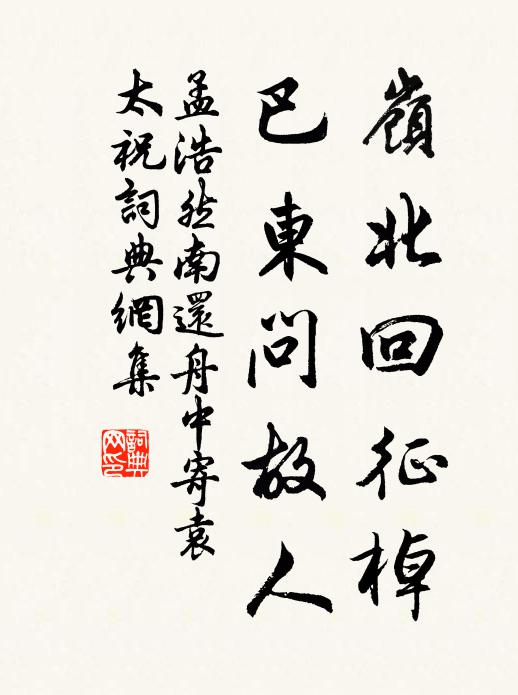 嶺北回征棹
巴東問故人
孟浩然南還舟中寄袁
太祝詞典網集
詞典网印